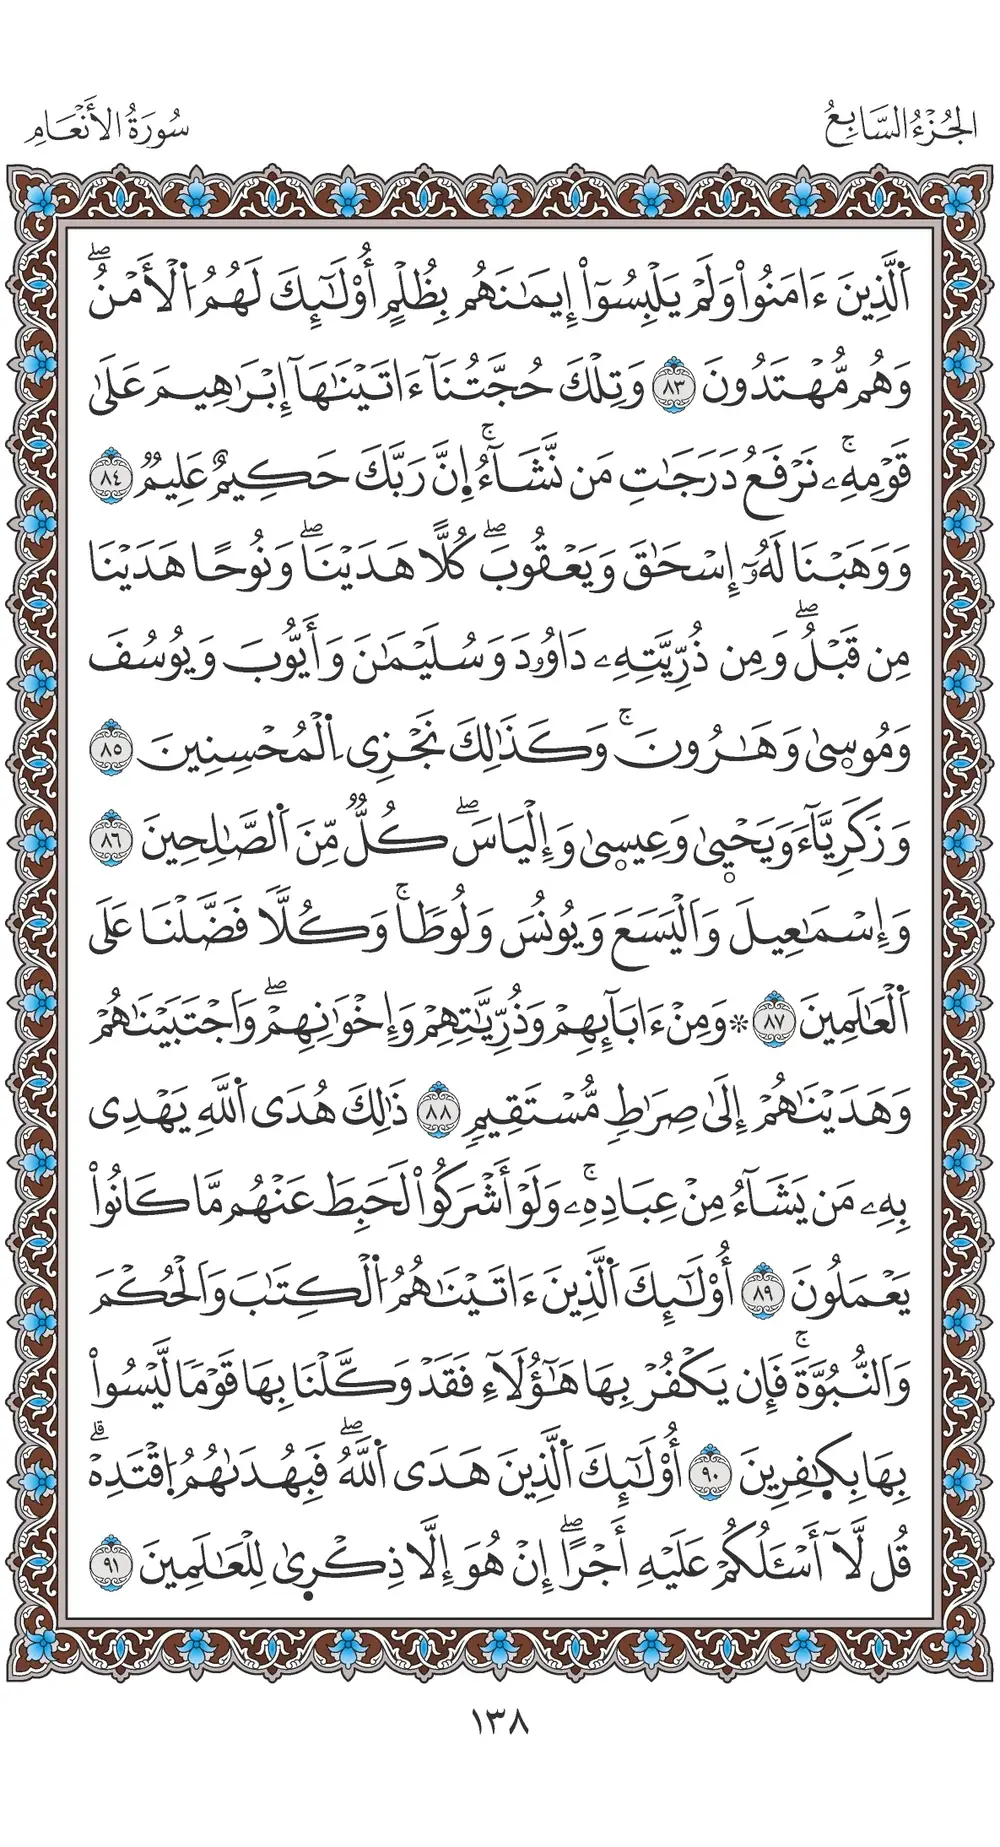 الجُزْءُ السَّابِعُ
سُورَةُ الأَنْعَامِ
اَ۬لَّذِينَ ءَامَنُواْ وَلَمْ يَلْبِسُوٓاْ إِيمَٰنَهُم بِظُلْمٍ أُوْلَٰٓئِكَ لَهُمُ اُ۬لْأَمْنُۖ
وَهُم مُّهْتَدُونَ ٨٣ وَتِلْكَ حُجَّتُنَآ ءَاتَيْنَٰهَآ إِبْرَٰهِيمَ عَلَىٰ
قَوْمِهِۦۚ نَرْفَعُ دَرَجَٰتِ مَن نَّشَآءُۚ إِنَّ رَبَّكَ حَكِيمٌ عَلِيمٌ ٨٤
وَوَهَبْنَا لَهُۥٓ إِسْحَٰقَ وَيَعْقُوبَۖ كُلًّا هَدَيْنَاۖ وَنُوحًا هَدَيْنَا
مِن قَبْلُۖ وَمِن ذُرِّيَّتِهِۦ دَاوُۥدَ وَسُلَيْمَٰنَ وَأَيُّوبَ وَيُوسُفَ
وَمُوسۭىٰ وَهَٰرُونَۚ وَكَذَٰلِكَ نَجْزِى اِ۬لْمُحْسِنِينَ ٨٥
وَزَكَرِيَّآءَ وَيَحْيۭىٰ وَعِيسۭىٰ وَإِلْيَاسَۖ كُلٌّ مِّنَ اَ۬لصَّٰلِحِينَ ٨٦
وَإِسْمَٰعِيلَ وَاَلْيَسَعَ وَيُونُسَ وَلُوطًاۚ وَكُلًّا فَضَّلْنَا عَلَى
اَ۬لْعَٰلَمِينَ ٨٧ * وَمِنْ ءَابَآئِهِمْ وَذُرِّيَّٰتِهِمْ وَإِخْوَٰنِهِمْۖ وَاَجْتَبَيْنَٰهُمْ
وَهَدَيْنَٰهُمْ إِلَىٰ صِرَٰطٍ مُّسْتَقِيمٍ ٨٨ ذَٰلِكَ هُدَى اَ۬للَّهِ يَهْدِى
بِهِۦ مَن يَشَآءُ مِنْ عِبَادِهِۦۚ وَلَوْ أَشْرَكُواْ لَحَبِطَ عَنْهُم مَّا كَانُواْ
يَعْمَلُونَ ٨٩ أُوْلَٰٓئِكَ اَ۬لَّذِينَ ءَاتَيْنَٰهُمُ اُ۬لْكِتَٰبَ وَاَلْحُكْمَ
وَاَلنُّبُوَّةَۚ فَإِن يَكْفُرْ بِهَا هَٰٓؤُلَآءِ فَقَدْ وَكَّلْنَا بِهَا قَوْمًا لَّيْسُواْ
بِهَا بِكٰ۪فِرِينَ ٩٠ أُوْلَٰٓئِكَ اَ۬لَّذِينَ هَدَى اَ۬للَّهُۖ فَبِهُدَىٰهُمُ اُ۪قْتَدِهْۗ
قُل لَّآ أَسْـَٔلُكُمْ عَلَيْهِ أَجْرًاۖ إِنْ هُوَ إِلَّا ذِكْر۪ىٰ لِلْعَٰلَمِينَ ٩١
١٣٨